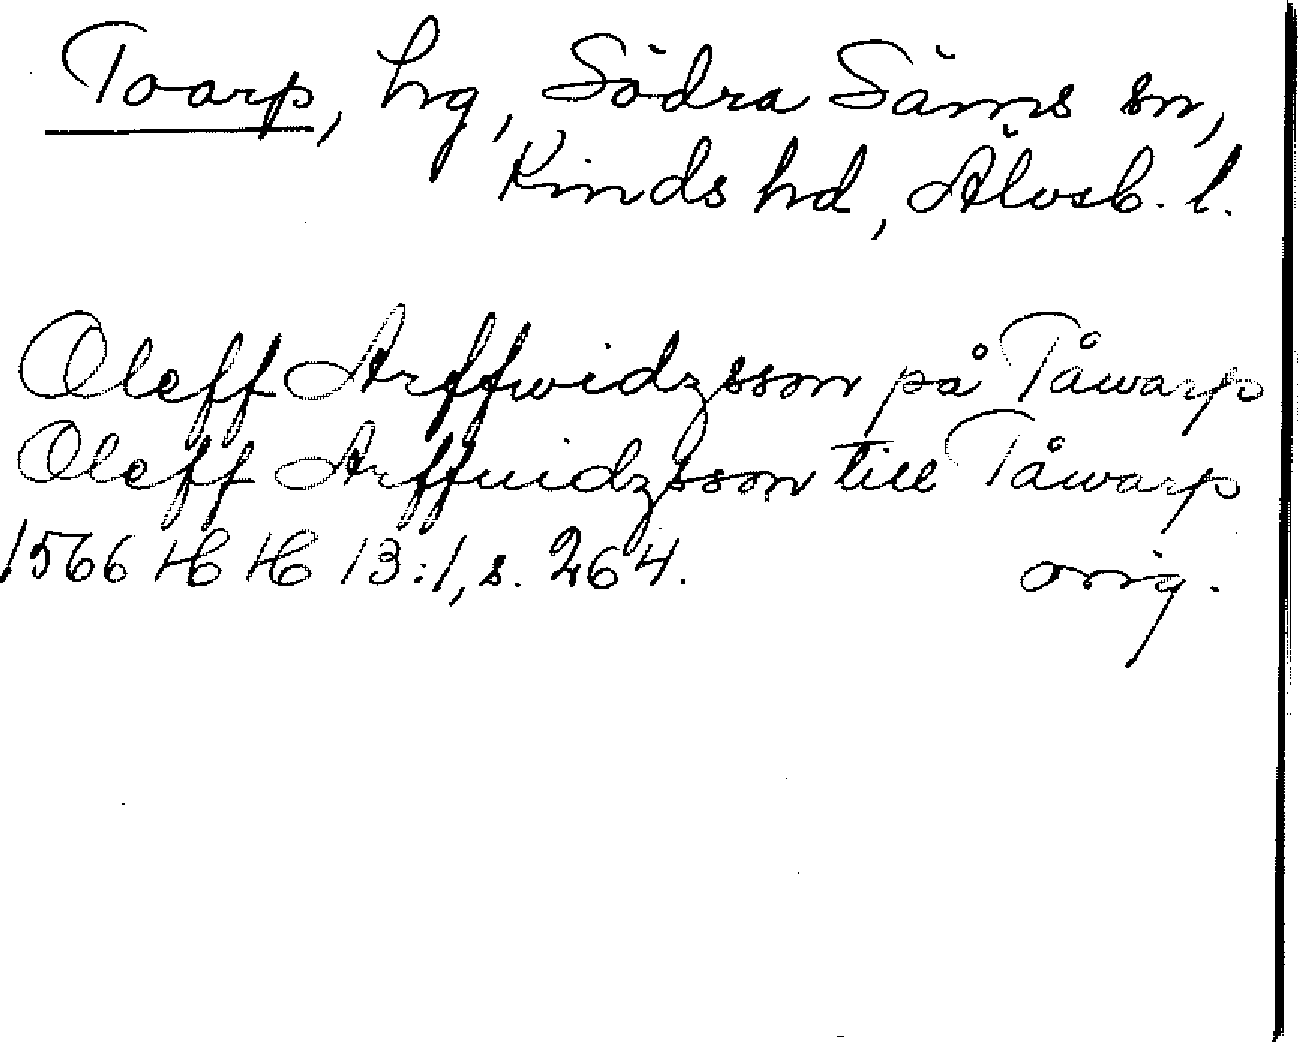 Toarp, hg, Södra Säms sn,
Kinds hd, Älvsb. l.
Oleff Arffwidzsson på Tåwarp
Oleff Arffuidzsson till Tåwarp
1566 HH 13:1, s. 264. orig.